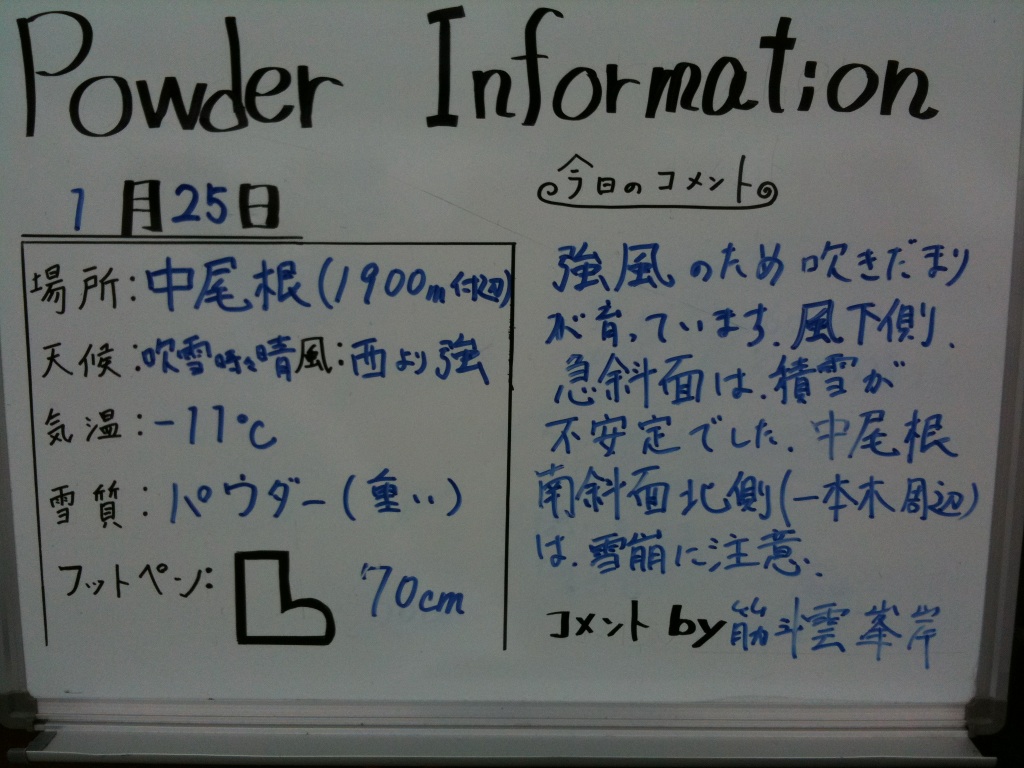 Powder Information
1月25日
場所:中尾根(1900m付近)
天候:吹雪時々晴 風:西より強
気温:-11℃
雪質:パウダー(重い)
フットペン: 70cm
今日のコメント
強風のため吹きだまり
が育っています.風下側.
急斜面は.積雪が
不安定でした.中尾根
南斜面北側(一本木周辺)
は.雪崩に注意.
コメント by 筋斗雲 峯岸